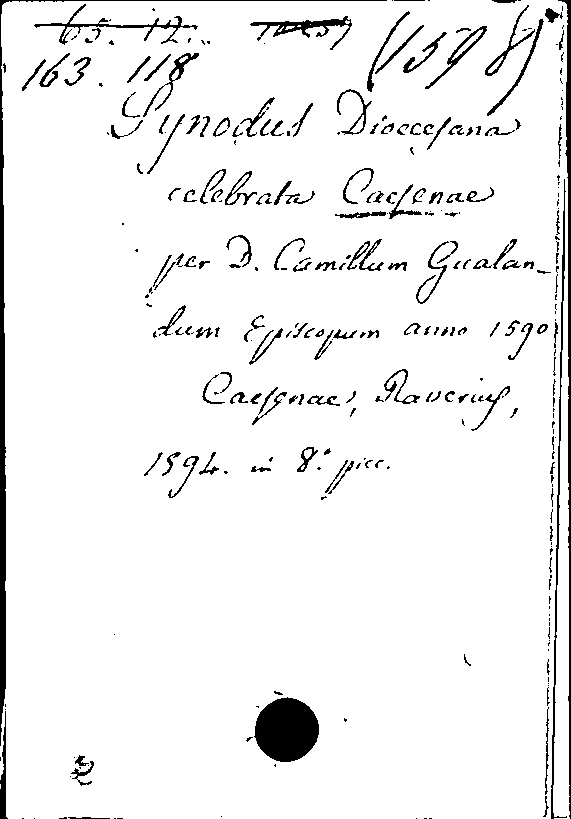 65. 12.
163. 118 (1598)
Synodus Dioecesana
celebrata Caesenae
per D. Camillum Gualan-
dum Episcopum anno 1590
Caesenae, Raverius,
1594. in 8.° picc.